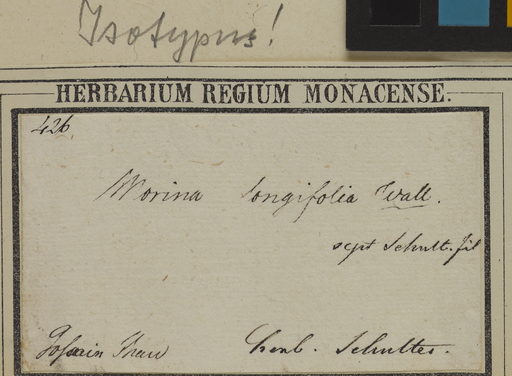 Isotypus!
HERBARIUM REGIUM MONACENSE.
426
Morina longifolia Wall.
Schult. fil
Gossain Than Herb. Schultes.